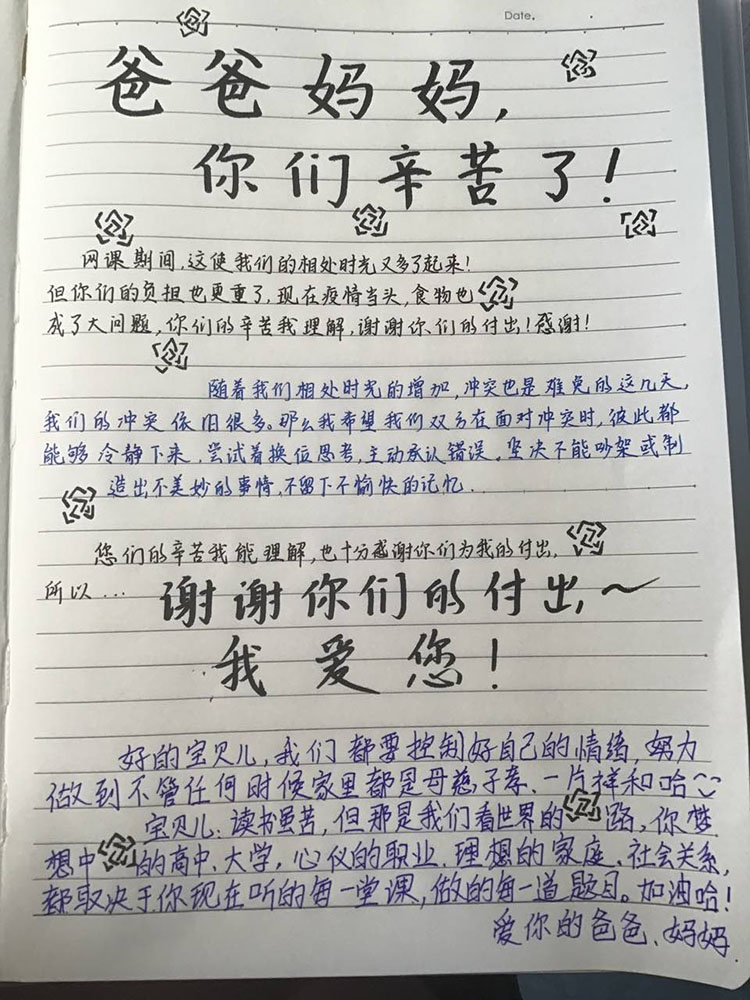 Date.
爸爸妈妈,
你们辛苦了!
网课期间,这使我们的相处时光又多了起来!
但你们的负担也更重了,现在疫情当头,食物也
成了大问题,你们的辛苦我理解,谢谢你们的付出!感谢!
随着我们相处时光的增加,冲突也是难免的这几天,
我们的冲突依旧很多。那么我希望我们双方在面对冲突时,彼此都
能够冷静下来,尝试着换位思考,主动承认错误,坚决不能吵架或制
造出不美妙的事情,不留下不愉快的记忆.
您们的辛苦我能理解,也十分感谢你们为我的付出,
所以...
谢谢你们的付出,~
我爱您!
好的宝贝儿,我们都要控制好自己的情绪,努力
做到不管任何时候家里都是母慈子孝、一片祥和哈
宝贝儿:读书虽苦,但那是我们看世界的路,你梦
想中的高中、大学,心仪的职业、理想的家庭、社会关系,
都取决于你现在听的每一堂课,做的每一道题目。加油哈!
爱你的爸爸、妈妈.